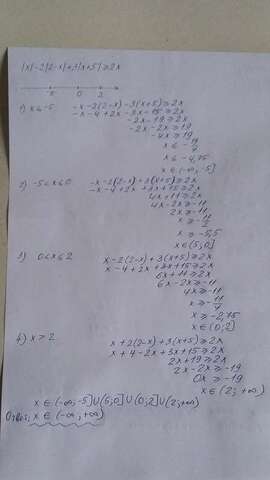 |x|-2|2-x|+3|x+5|≥2x
-5 0 2 x
1) x≤-5 -x-2(2-x)-3(x+5)≥2x
-x-4+2x-3x-15≥2x
-2x-19≥2x
-2x-2x≥19
-4x≥19
x≤-19/4
x≤-4,75
x∈(-∞,-5]
2) -5<x≤0 -x-2(2-x)+3(x+5)≥2x
-x-4+2x+3x+15≥2x
4x+11≥2x
4x-2x≥-11
2x≥-11
x≥-11/2
x≥-5,5
x∈(5,0]
3) 0<x≤2 x-2(2-x)+3(x+5)≥2x
x-4+2x+3x+15≥2x
6x+11≥2x
6x-2x≥-11
4x≥-11
x≥-11/4
x≥-2,75
x∈(0,2]
4) x>2 x+2(2-x)+3(x+5)≥2x
x+4-2x+3x+15≥2x
2x+19≥2x
2x-2x≥-19
0x≥-19
x∈(2,+∞)
x∈(-∞,-5]∪(5,0]∪(0,2]∪(2,+∞)
Ответ: x∈(-∞,+∞)